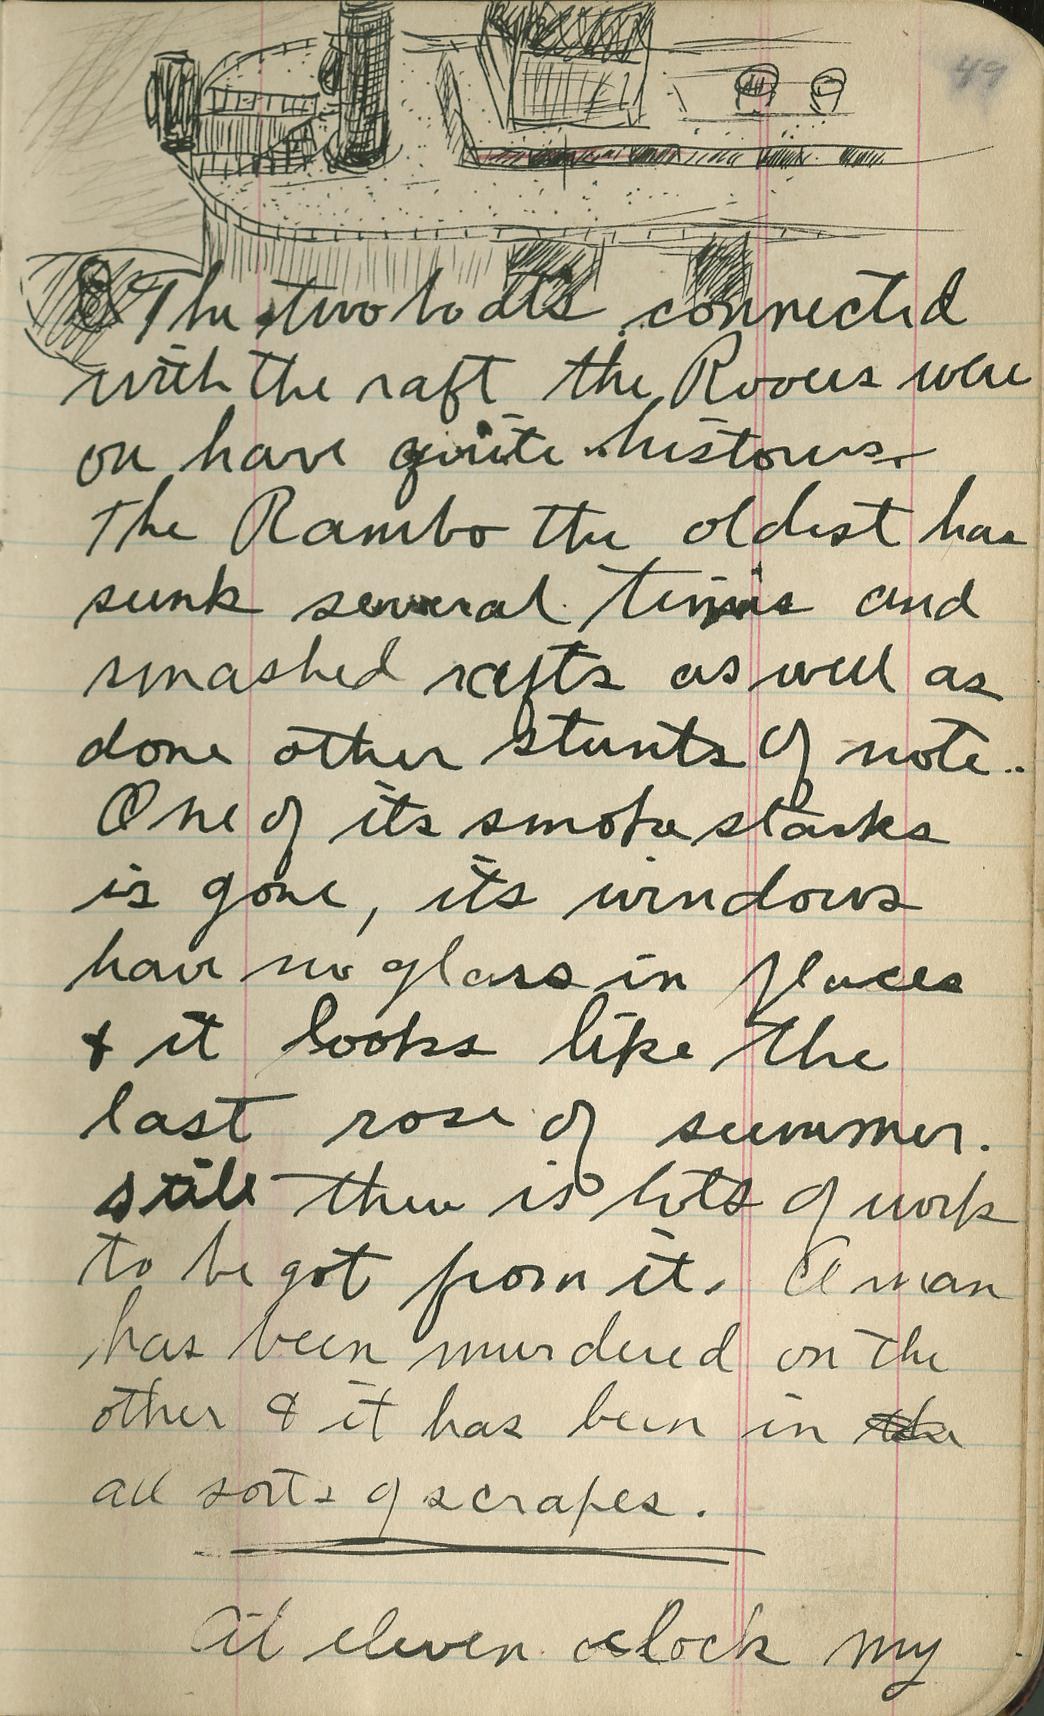 49
The two boats connected
with the raft the Rovers were
on have quite histories.
The Rambo the oldest has
sunk several times and
smashed rafts as well as
done other stunts of note.
One of its smoke stacks
is gone, its windows
have no glass in places
& it looks like the
last rose of summer.
still there is lots of work
to be got from it. A man
has been murdered on the
other & it has been in the
all sorts of scrapes.
At eleven oclock my